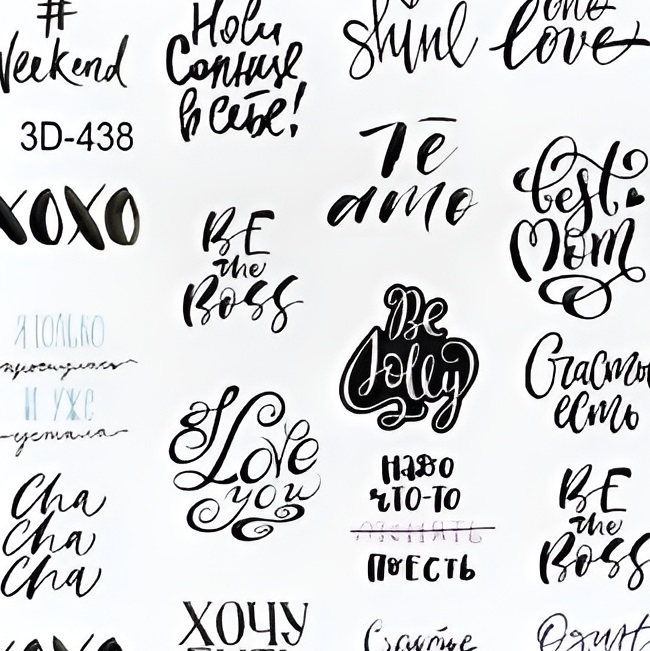 #
Weekend
3D-438
XOXO
Я ТОЛЬКО
проснулась
И УЖЕ
устала
Cha
Cha
Cha
Ношу
Солнце
в себе!
BE
the
Boss
I Love
you
ХОЧУ
shine
Te
amo
Be
Jolly
НАДО
ЧТО-ТО
ПОЕСТЬ
Счастье
one
love
Best
Mom
Счастье
есть
BE
the
Boss